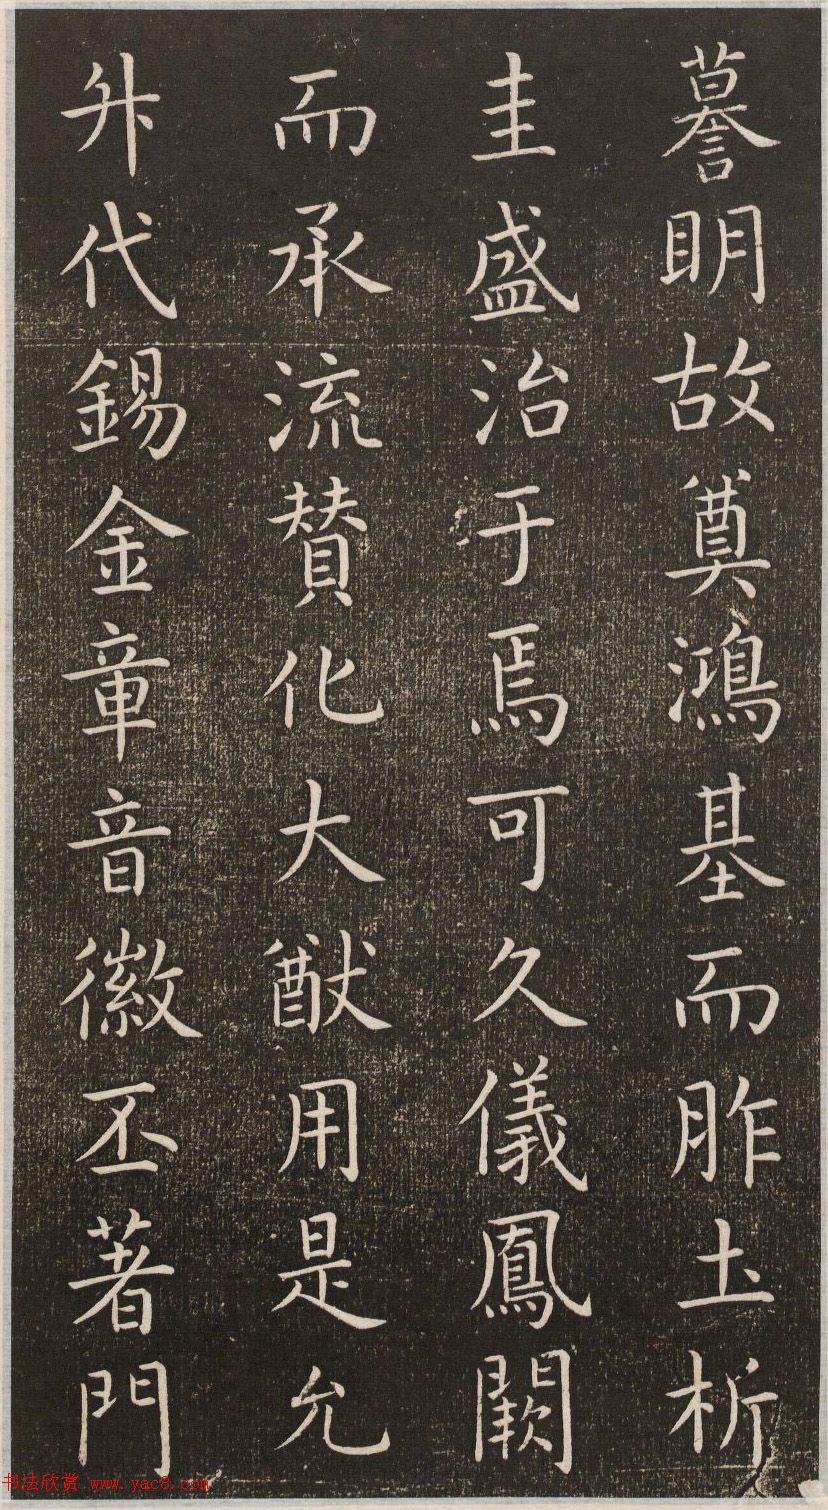 謩明故奠鴻基而胙土析
圭盛治于焉可久儀鳳闕
而承流賛化大猷用是允
升代錫金章音徽丕著門
书法欣赏 www.yac8.com